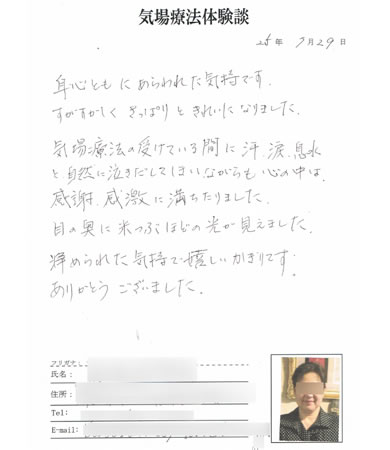 気場療法体験談
25年 3月29日
身心ともにあらわれた気持です。
すがすがしく さっぱりときれいになりました。
気場療法の受けている間に 汗、涙、息水
と自然に泣きだしてしまいながらも 心の中は、
感謝、感激に満ちたりました。
目の奥に米つぶほどの光が見えました。
められた気持で嬉しいかぎりです。
ありがとうございました。
フリガナ:
氏名:
住所:
Tel:
E-mail: